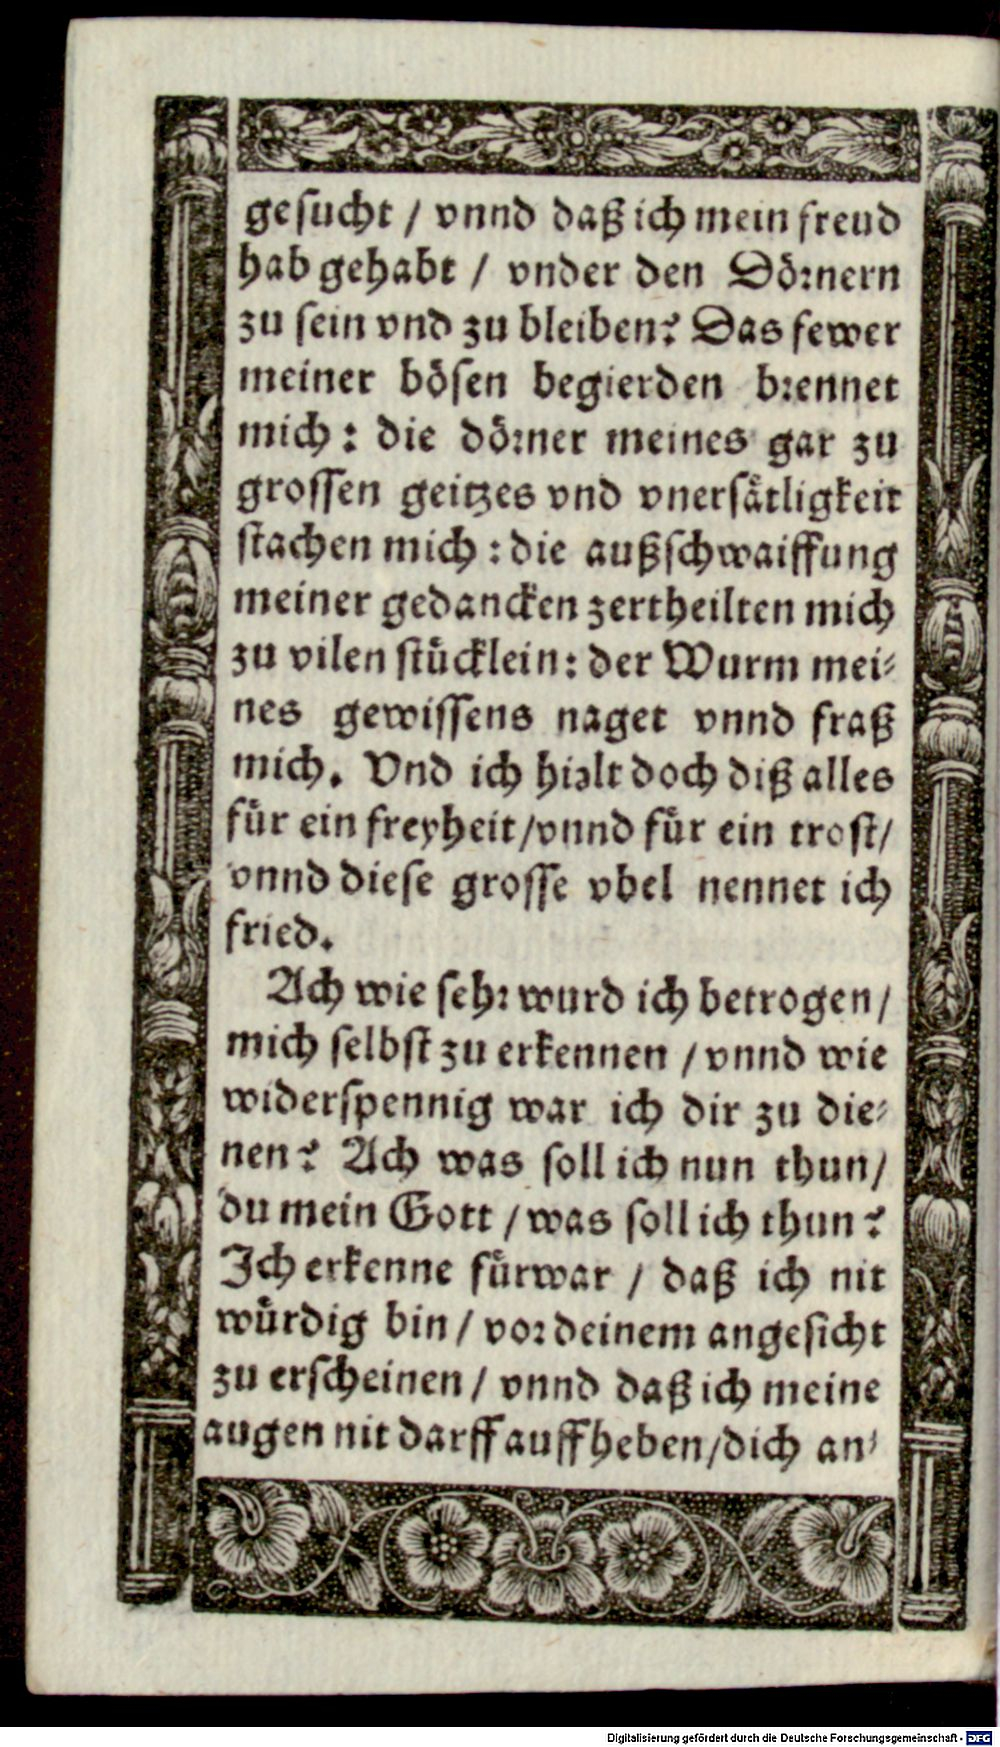 gesucht / vnnd daß ich mein freud
hab gehabt / vnder den Dörnern
zu sein vnd zu bleiben? Das fewer
meiner bösen begierden brennet
mich: die dörner meines gar zu
grossen geitzes vnd vnersätligkeit
stachen mich: die außschwaiffung
meiner gedancken zertheilten mich
zu vilen stücklein: der Wurm mei-
nes gewissens naget vnnd fraß
mich. Vnd ich hielt doch diß alles
für ein freyheit/vnnd für ein trost/
vnnd diese grosse vbel nennet ich
fried.
Ach wie sehr wurd ich betrogen/
mich selbst zu erkennen / vnnd wie
widerspennig war ich dir zu die-
nen? Ach was soll ich nun thun/
du mein Gott / was soll ich thun?
Ich erkenne fürwar / daß ich nit
würdig bin / vor deinem angesicht
zu erscheinen / vnnd daß ich meine
augen nit darff auffheben/dich an-
Digitalisierung gefördert durch die Deutsche Forschungsgemeinschaft - DFG